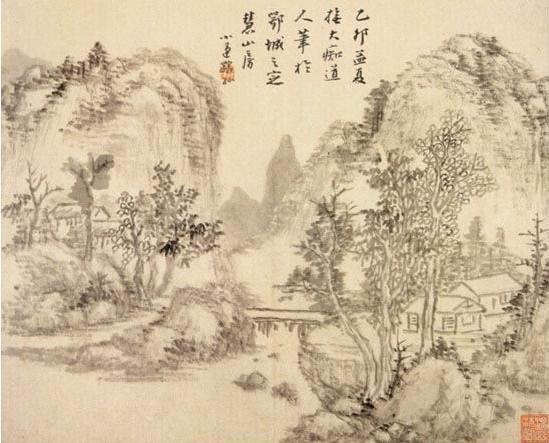 乙卯孟夏
橅大痴道
人筆於
鄂城之定
慧山房
小蓮